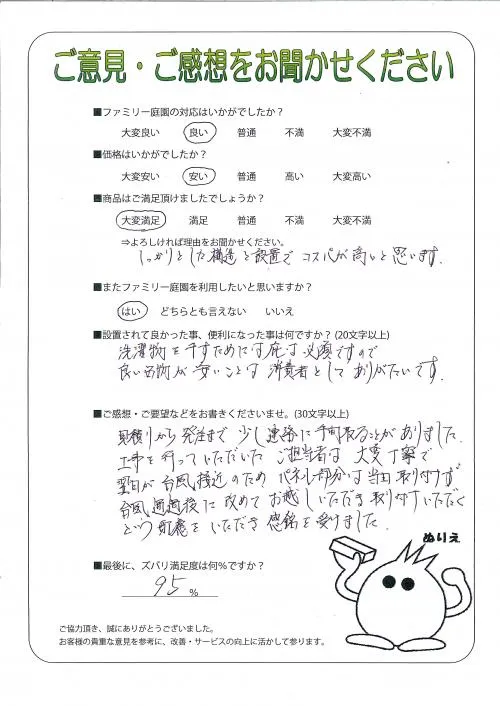 ご意見・ご感想をお聞かせください
■ファミリー庭園の対応はいかがでしたか？
大変良い 良い 普通 不満 大変不満
■価格はいかがでしたか？
大変安い 安い 普通 高い 大変高い
■商品はご満足頂けましたでしょうか？
大変満足 満足 普通 不満 大変不満
⇒よろしければ理由をお聞かせください。
しっかりとした構造と設置で コスパが高いと思います.
■またファミリー庭園を利用したいと思いますか？
はい どちらとも言えない いいえ
■設置されて良かった事、便利になった事は何ですか？(20文字以上)
洗濯物を干すためには庇は必須ですので
良い品物が安いことは 消費者として ありがたいです.
■ご感想・ご要望などをお書きくださいませ。(30文字以上)
見積りから発注まで 少し連絡に手間取ることがありました.
工事を行っていただいた ご担当者は 大変丁寧で
翌日が台風接近のため パネル部分は当日取付けず
台風通過後に改めてお越しいただき取り付ていただく
という配慮をいただき 感銘を受けました.
ぬりえ
■最後に、ズバリ満足度は何%ですか？
95 %
ご協力頂き、誠にありがとうございました。
お客様の貴重な意見を参考に、改善・サービスの向上に活かして参ります。